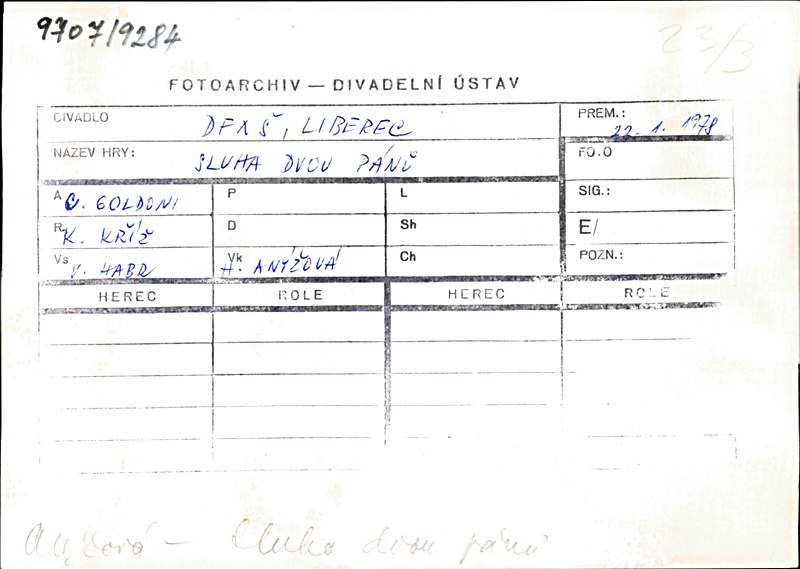 9707/9284
23/3
FOTOARCHIV — DIVADELNÍ ÚSTAV
DIVADLO DFXŠ, LIBEREC
PREM.: 22. 1. 1978
NÁZEV HRY: SLUHA DVOU PÁNŮ
FO.O
A C. GOLDONI P L SIG.:
R. K. KŘÍŽ D Sh E/
Vs V. HABR Vk H. ANÝŽOVÁ Ch POZN.:
HEREC ROLE HEREC ROLE
Anýžová — Sluha dvou pánů